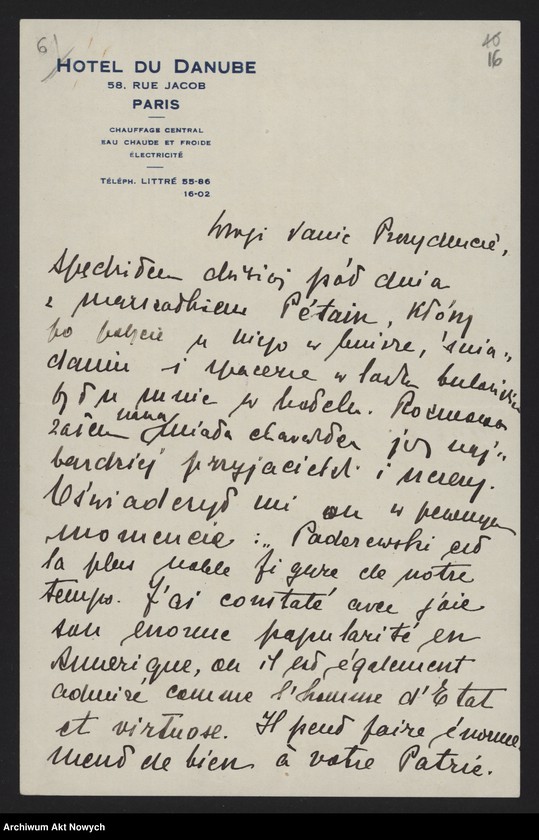 6)
46
16
HOTEL DU DANUBE
58. RUE JACOB
PARIS
CHAUFFAGE CENTRAL
EAU CHAUDE ET FROIDE
ÉLECTRICITÉ
TÉLÉPH. LITTRÉ 55-86
16-02
Drogi Panie Prezydencie,
spędziłem dzisiaj pół dnia
z marszałkiem Pétain, który
po wizycie u niego w biurze, śnia„
daniu i spacerze w lasku bulońskim
był u mnie w hotelu. Rozmowa
zatem nasza miała charakter jak naj„
bardziej przyjacielski i szczery.
Oświadczył mi on w pewnym
momencie : „Paderewski est
la plus noble figure de notre
temps. J'ai constaté avec joie
son énorme popularité en
Amerique, ou il est également
admiré comme l'homme d'Etat
et virtuose. Il peut faire énormé
ment de bien à votre Patrie.
Archiwum Akt Nowych